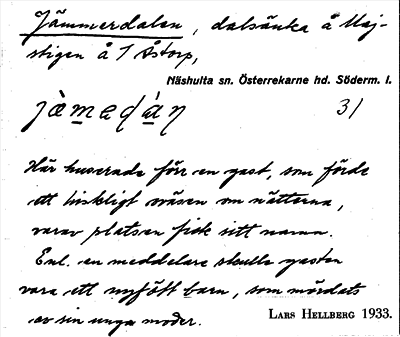 Jämmerdalen, dalsänka å Maj-
stigen å 1 Åstorp,
Näshulta sn. Österrekarne hd. Söderm. l.
jàmedàn 31
Här huserade förr en gast, som förde
ett hiskligt väsen om nätterna,
varav platsen fick sitt namn.
Enl. en meddelare skulle gasten
vara ett nyfött barn, som mördats
av sin unga moder.
LARS HELLBERG 1933.